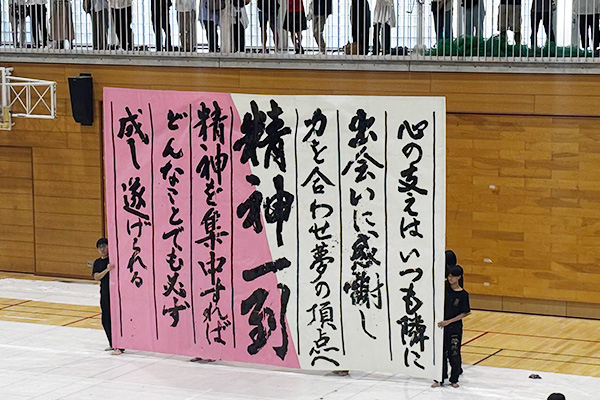 心の支えはいつも隣に
出会いに感謝し
力を合わせ夢の頂点へ
精神一到
精神を集中すれば
どんなことでも必ず
成し遂げられる